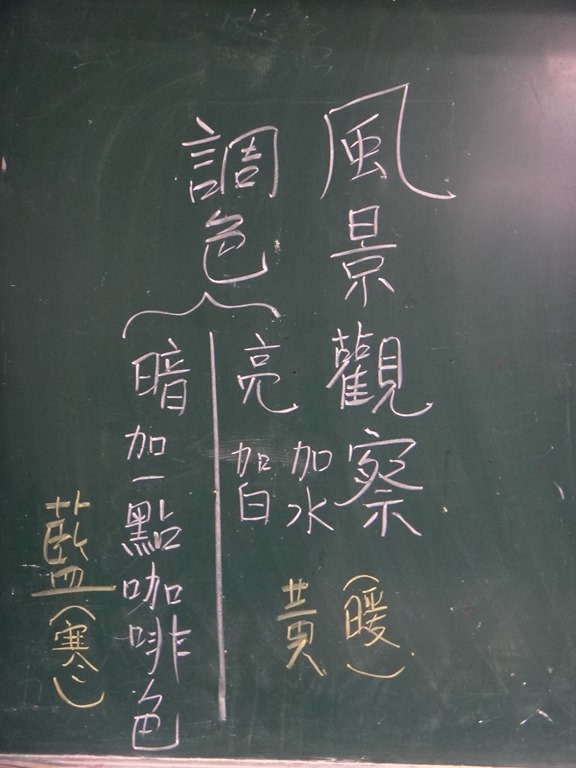 風景觀察
調色
亮
加水
加白
黃
（暖）
暗
加一點咖啡色
藍（寒）